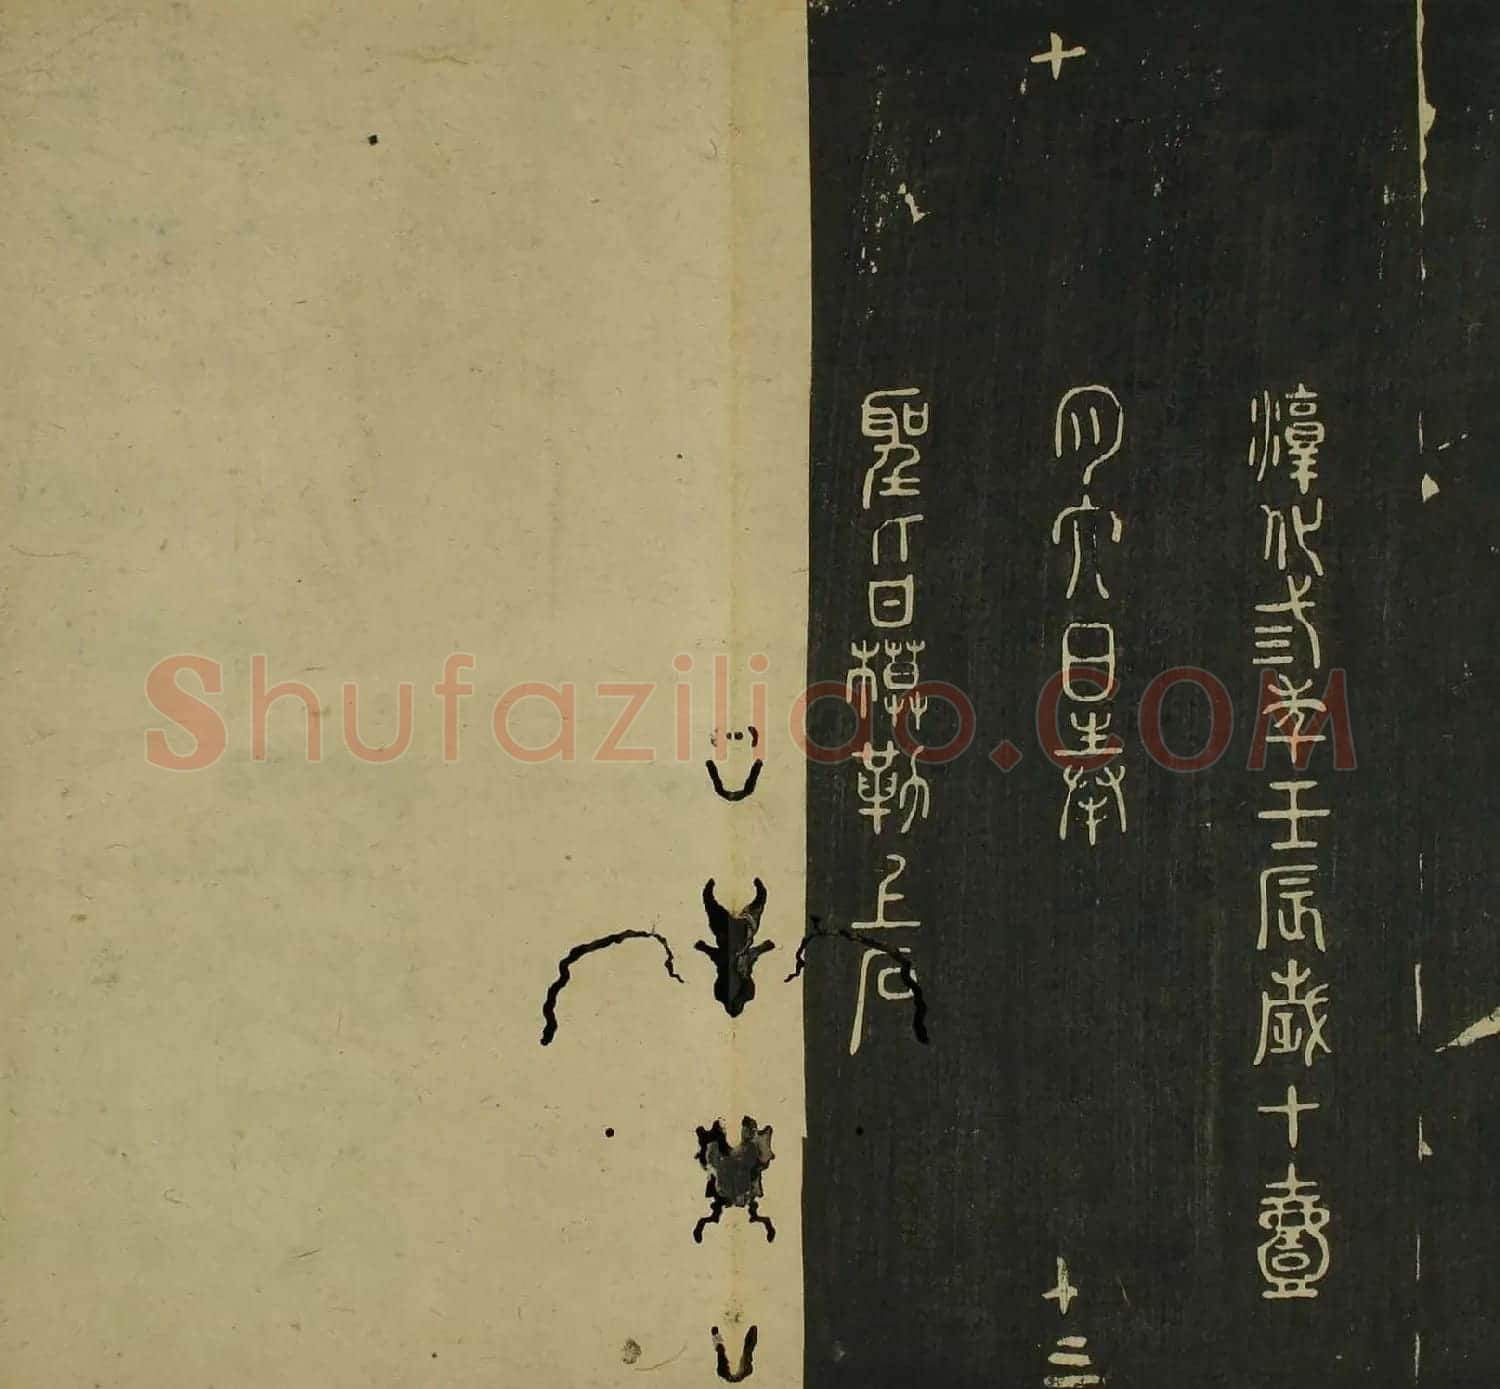 淳化弎年壬辰歲十壹
十
月六日奉
十三
聖旨模勒上石
Shufaziliao.COM